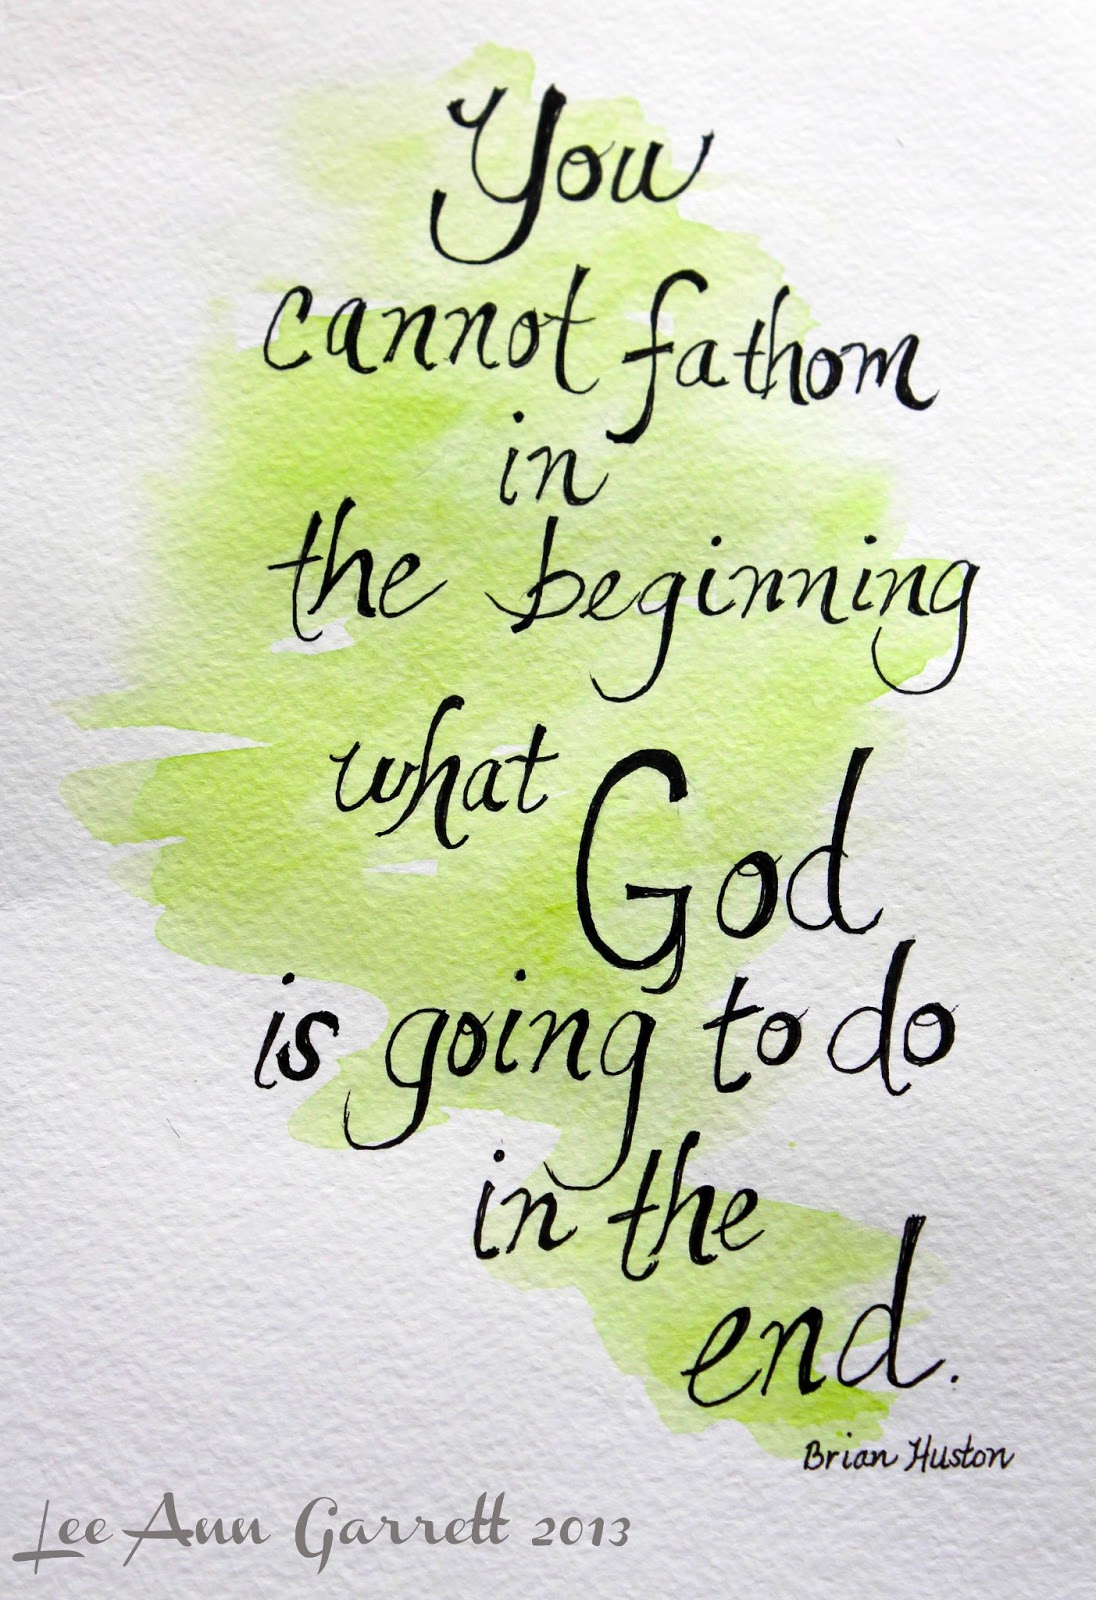 You
cannot fathom
in
the beginning
what God
is going to do
in the
end.
Brian Huston
Lee Ann Garrett 2013